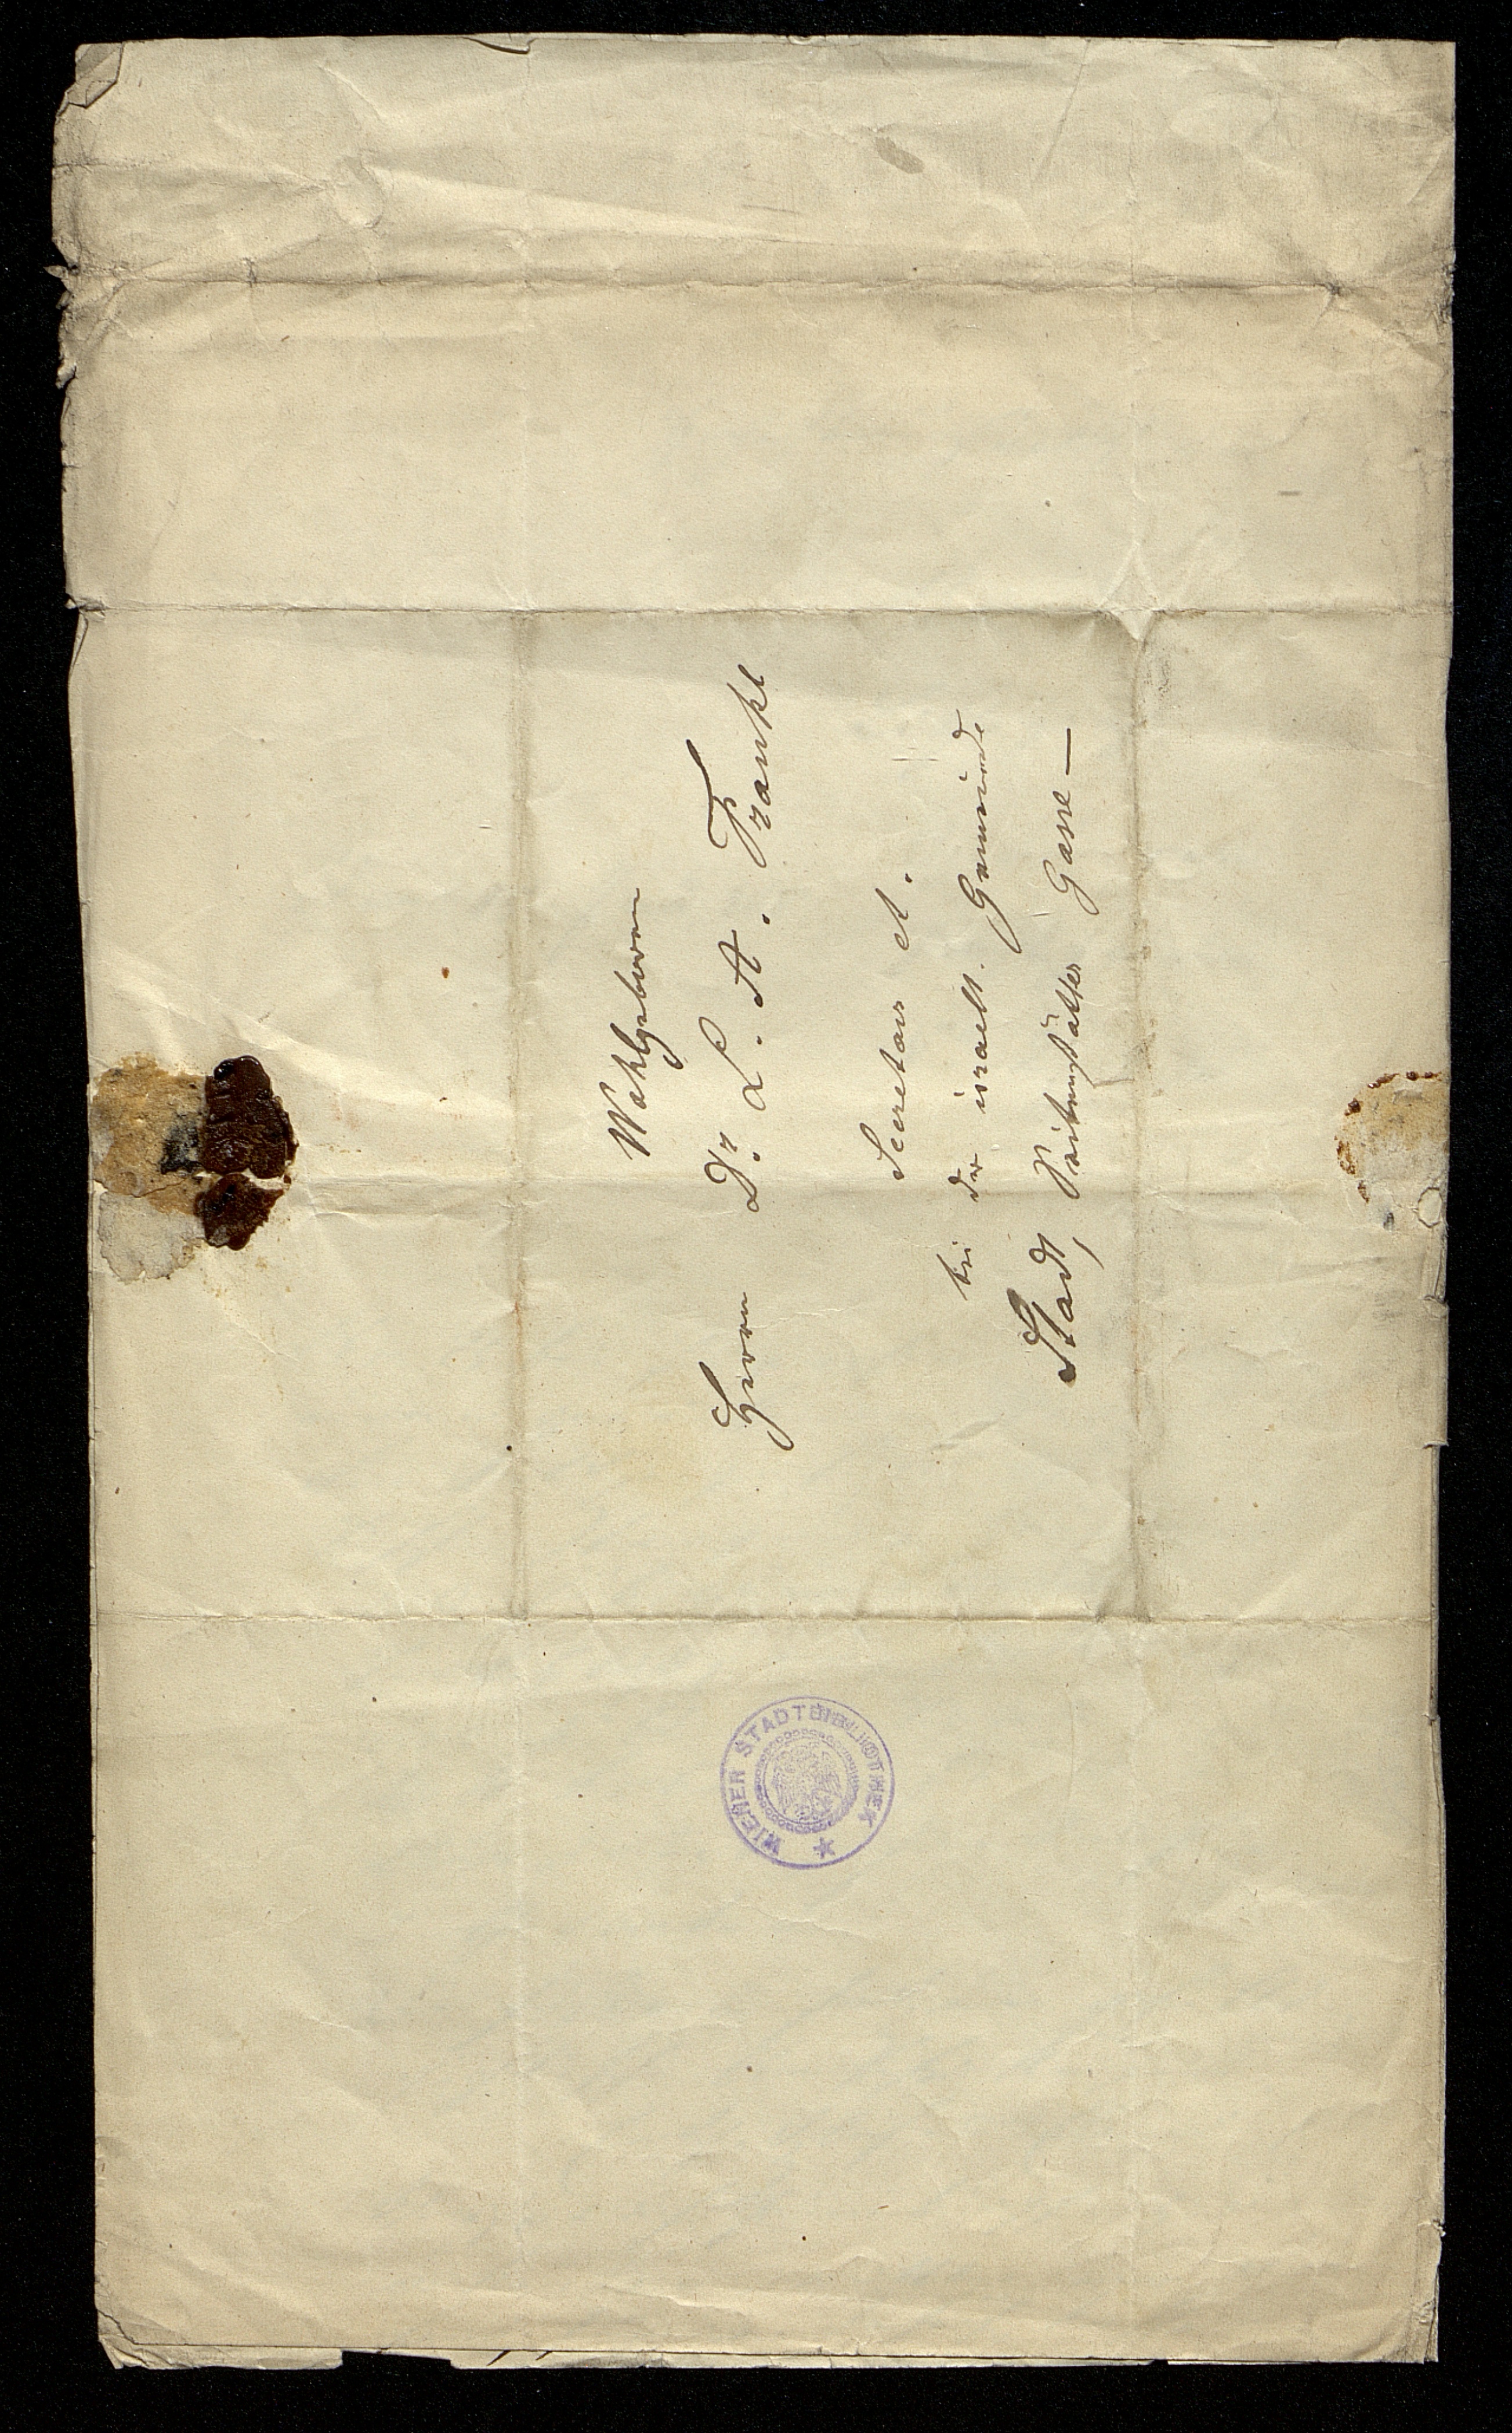 Wohlgeboren
Herrn Dr. L. A. Frankl
Secretair etc.
bei der israelt. Gemeinde
Stadt, Seitenstätter Gasse —
WIENER STADTBIBLIOTHEK